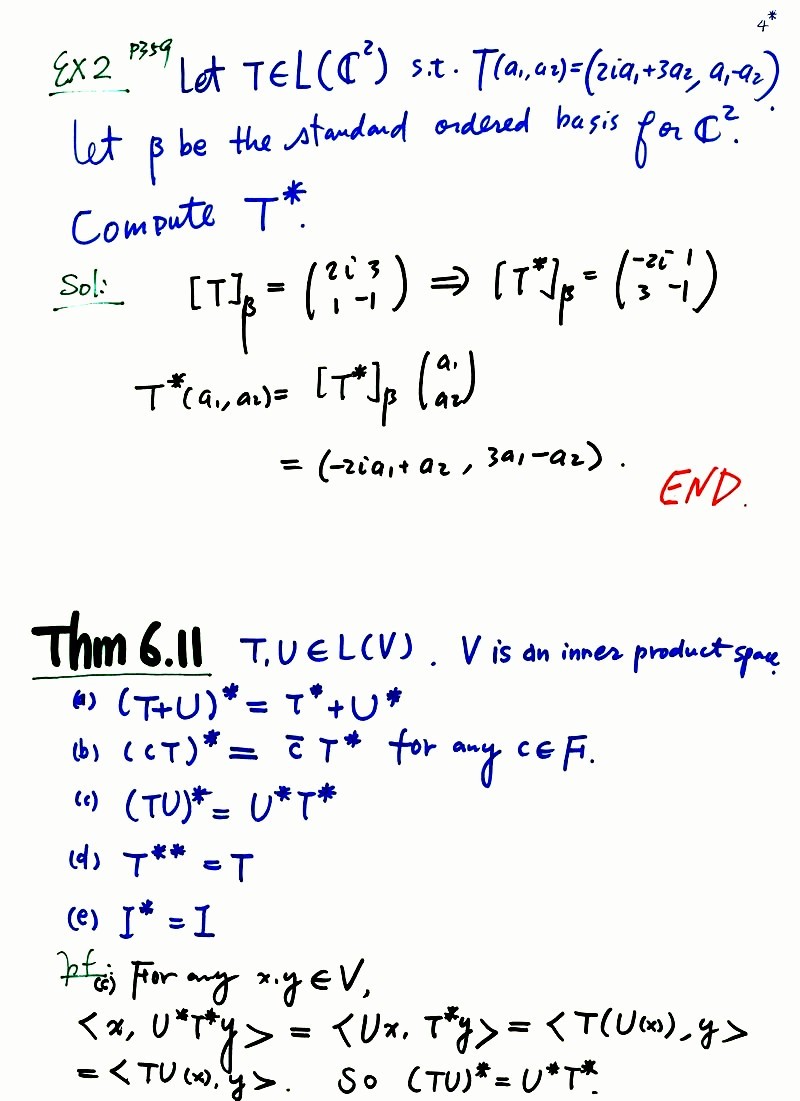 4*
EX2 P359 Let T∈L(ℂ²) s.t. T(a₁,a₂)=(2ia₁+3a₂, a₁-a₂).
Let β be the standard ordered basis for ℂ².
Compute T*.
Sol: [T]β = (2i 3 / 1 -1) ⇒ [T*]β = (-2i 1 / 3 -1)
T*(a₁,a₂)= [T*]β (a₁ / a₂)
= (-2ia₁+a₂, 3a₁-a₂).
END.
Thm 6.11 T,U∈L(V). V is an inner product space
(a) (T+U)* = T*+U*
(b) (cT)* = c̄ T* for any c∈F.
(c) (TU)* = U*T*
(d) T** = T
(e) I* = I
pf: (c) For any x,y∈V,
<x, U*T*y> = <Ux, T*y> = <T(U(x)), y>
= <TU(x), y>. So (TU)* = U*T*.